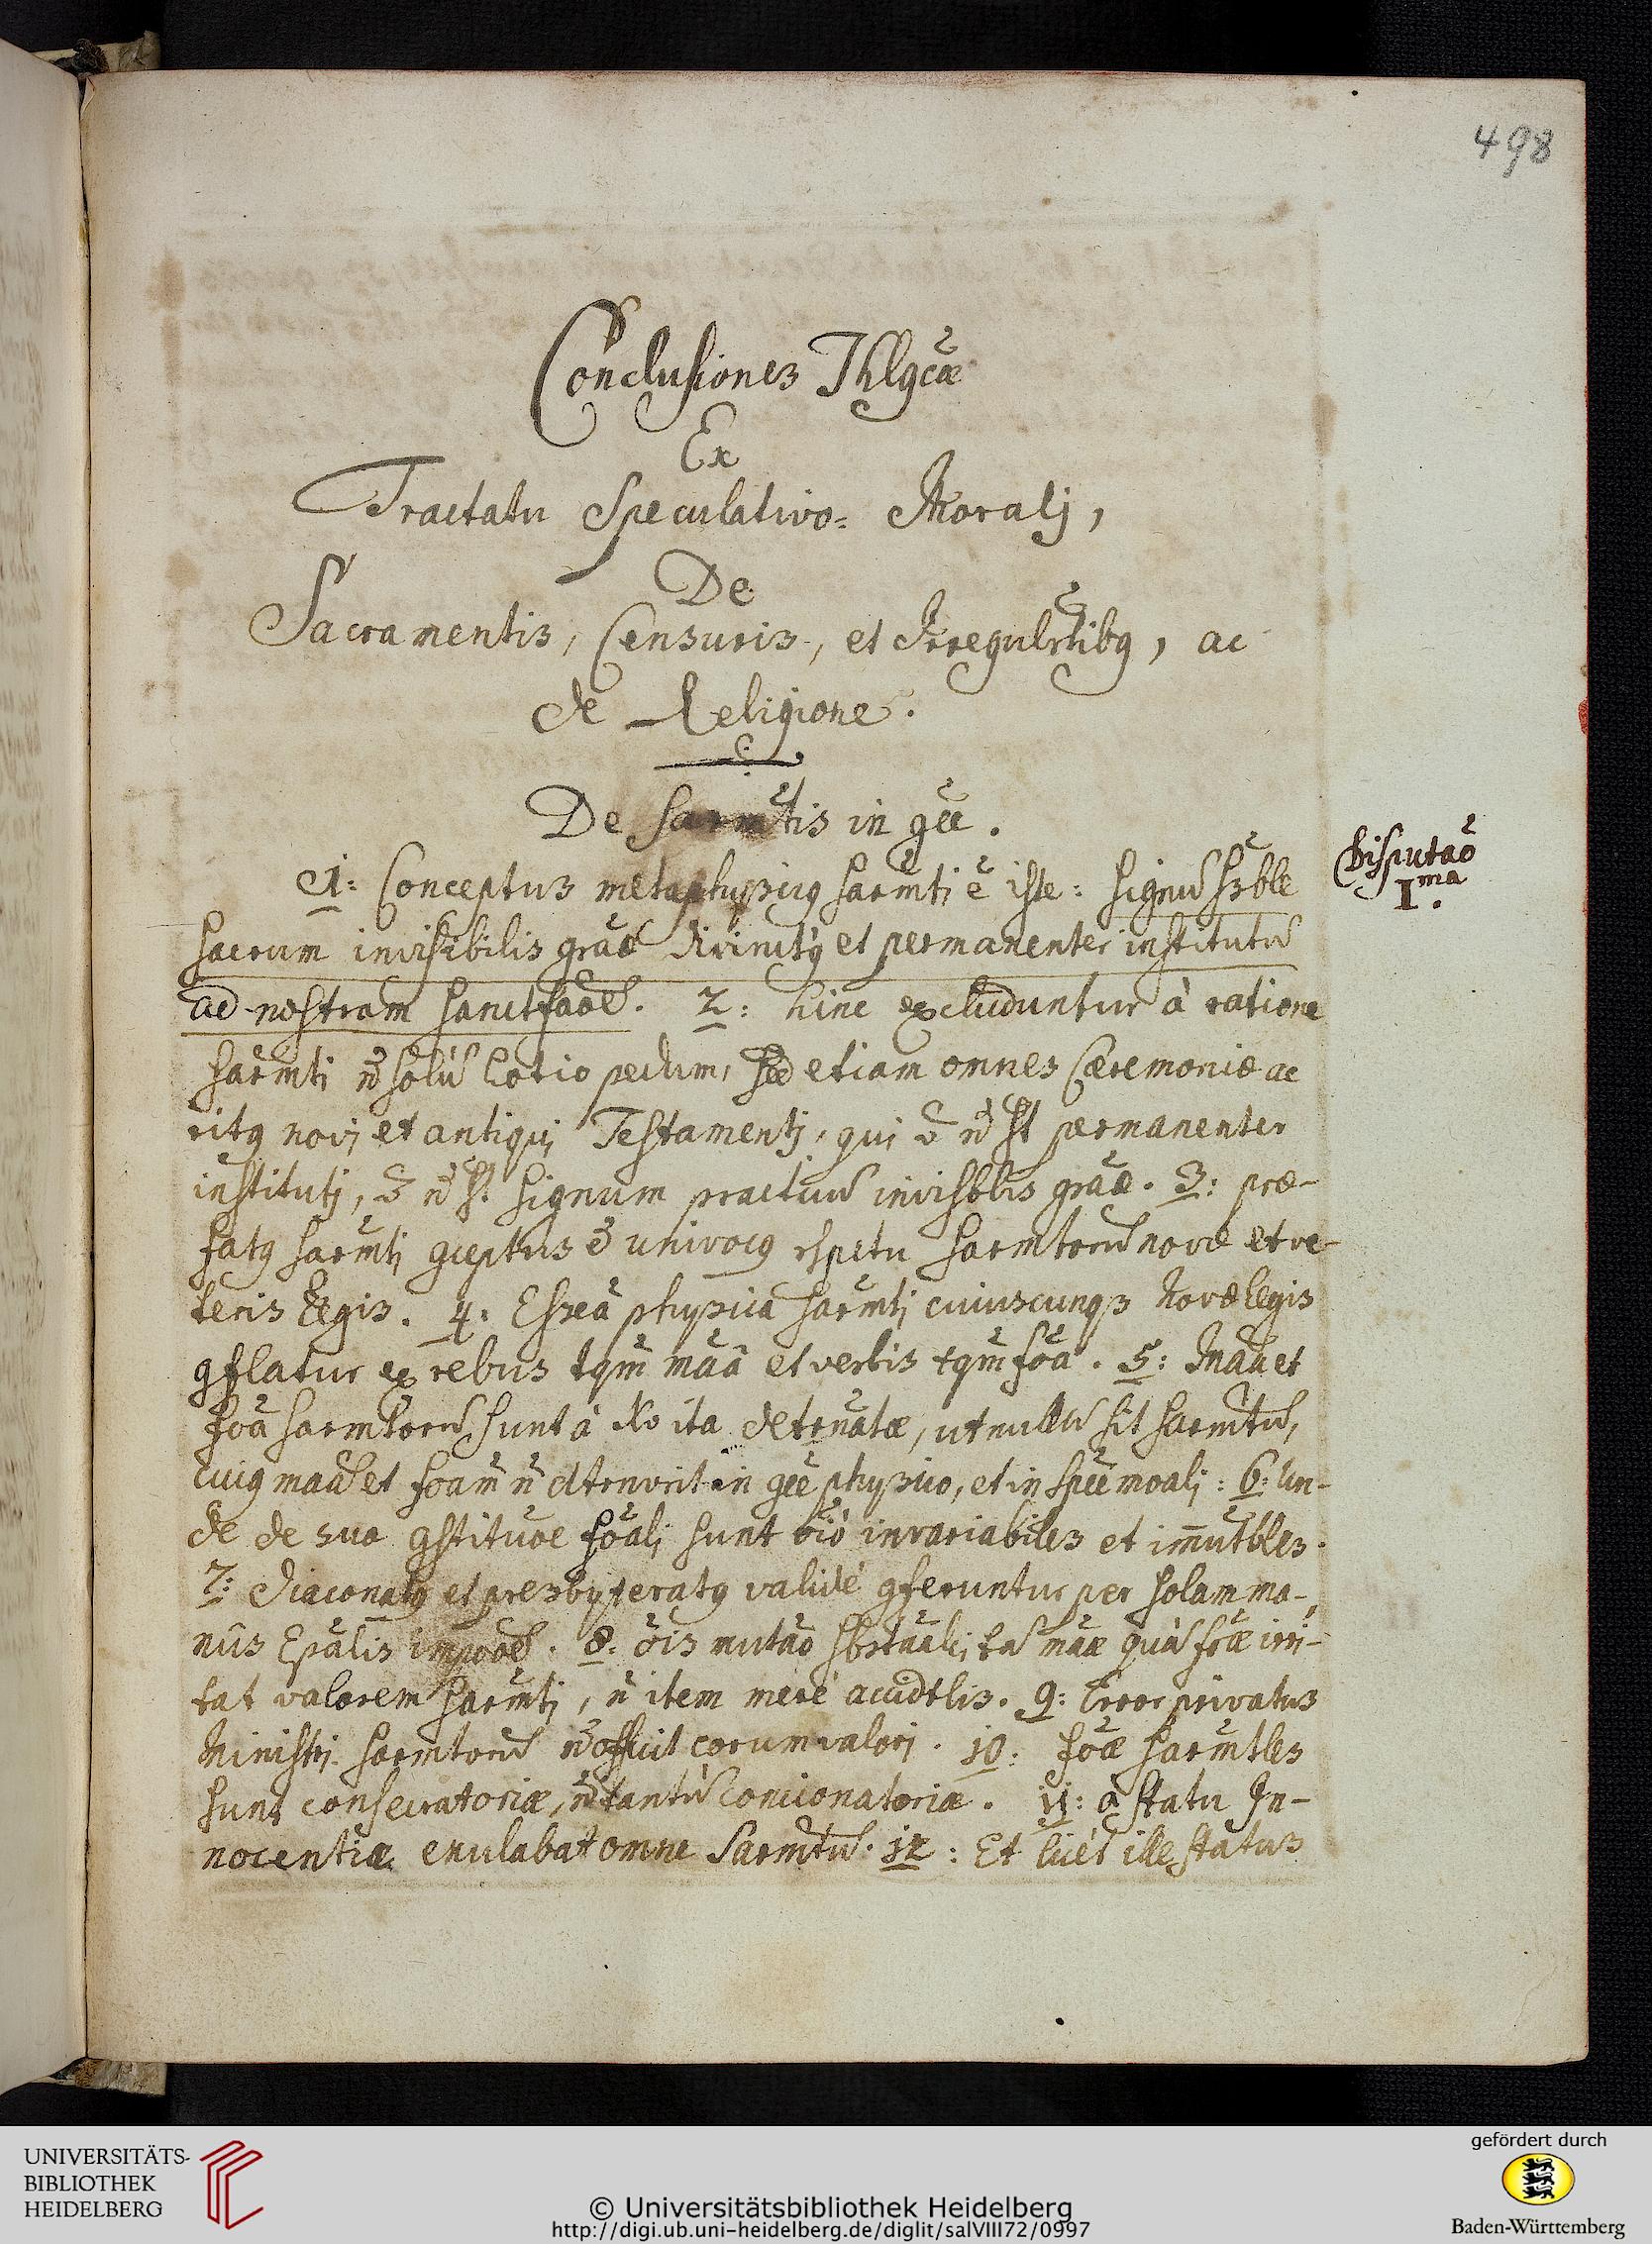 498
Conclusiones Thlgcæ
Ex
Tractatu Speculativo- Moralj,
De
Sacramentis, Censuris, et Irregulrtibq, ac
de Religione.
De Sarmtis in gēe.
Disputāo
I.ma
1: Conceptus metaphysicq sarmti ē iste: signū ssble
sacrum invisibilis grāæ divinitq et permanenter institutū
ad nostram sanctfāoē. 2: hinc excluduntur à ratione
sarmti n̄ solū lotio pedum, sed etiam omnes Cæremoniæ ac
ritq novj et antiquj Testamentj, qui n̄ st permanenter
institutj, n̄ st signum practicū invisblis grāæ. 3: præ-
fatq sarmtj gceptus ē univocq rspctu sarmtorū novæ et ve-
teris Legis. 4: Essēa physica sarmtj cuiuscunqs Novæ Legis
gflatur ex rebus tqm̄ māa et verbis tqm̄ fōa. 5: Māa et
fōa sarmtorū sunt à Xo ita detrnatæ, ut nullū sit sarmtū,
cuiq māā et fōam n̄ dtrnvrit in gēe physico, et in spēe moalj: 6: Un-
de de sua gstituōe fōalj sunt oīo invariabiles et im̄utbles.
7: Diaconatq et presbyteratq validè gferuntur per solam ma-
nūs Epālis impoōē. 8: ōis mutāo sbstāalj tā māæ quā fōæ irri-
tat valorem sarmtj, n̄ item merè accidtlis. 9: Error privatus
Ministrj sarmtorū n̄ officit eorum valorj. 10: fōæ sarmtles
sunt consecratoriæ, n̄ tantū concionatoriæ. 11: à statu In-
nocentiæ exulabat omne Sarmtū. 12: Et licèt ille status
UNIVERSITÄTS-
BIBLIOTHEK
HEIDELBERG
© Universitätsbibliothek Heidelberg
http://digi.ub.uni-heidelberg.de/diglit/salVIII72/0997
gefördert durch
Baden-Württemberg